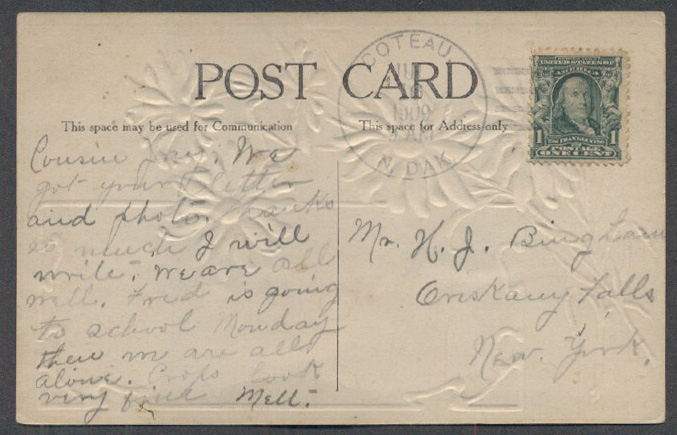 POST CARD
This space may be used for Communication
This space for Address only
COTEAU
1909
N. DAK.
UNITED STATES OF AMERICA
1 1
POSTAGE
ONE CENT
Cousin We
got your letter
and photo. thanks
so much I will
write. We are all
well. Fred is going
to school Monday
then we are all
alone. Crops look
very fine Mell.
Mr. H. J. Bingham
Oriskany Falls
New. York.